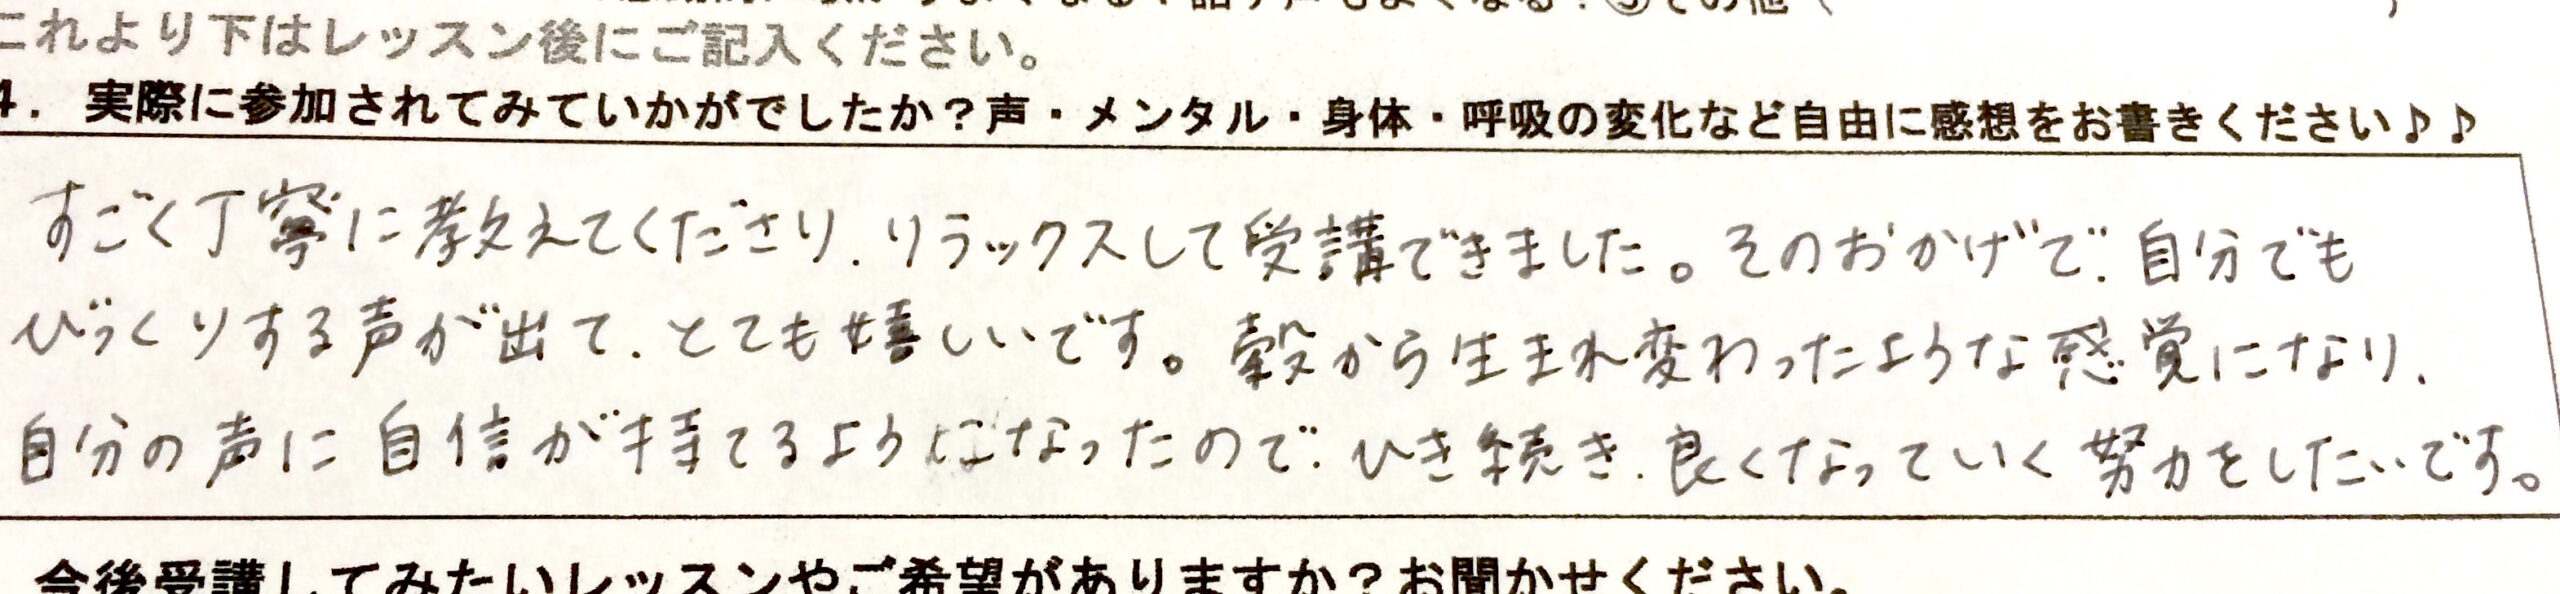 これより下はレッスン後にご記入ください。
4. 実際に参加されてみていかがでしたか？声・メンタル・身体・呼吸の変化など自由に感想をお書きください♪♪
すごく丁寧に教えてくださり、リラックスして受講できました。そのおかげで、自分でも
びっくりする声が出て、とても嬉しいです。殻から生まれ変わったような感覚になり、
自分の声に自信が持てるようになったので、ひき続き、良くなっていく努力をしたいです。
今後受講してみたいレッスンやご希望がありますか？お聞かせください。